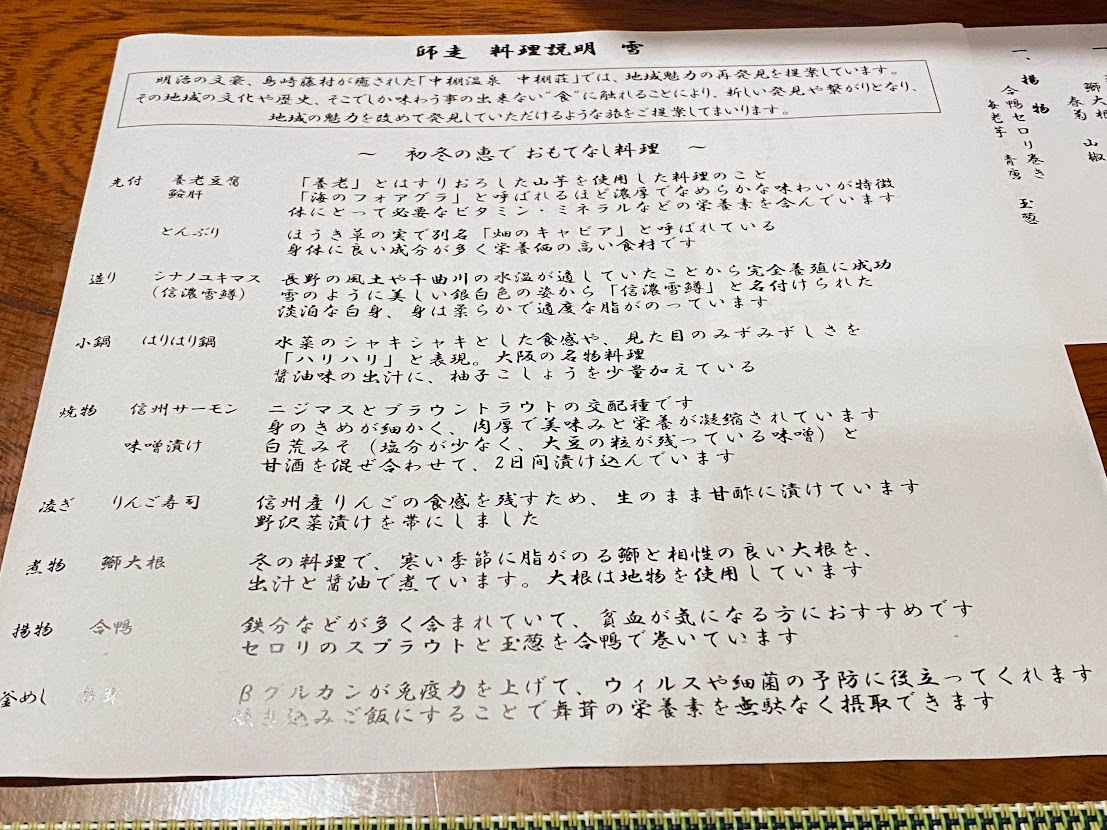 師走 料理説明 雪
明治の文豪、島崎藤村が癒された「中棚温泉 中棚荘」では、地域魅力の再発見を提案しています。
その地域の文化や歴史、そこでしか味わう事の出来ない"食"に触れることにより、新しい発見や繋がりとなり、
地域の魅力を改めて発見していただけるような旅をご提案してまいります。
～ 初冬の恵で おもてなし料理 ～
先付 養老豆腐 「養老」とはすりおろした山芋を使用した料理のこと
鮟肝 「海のフォアグラ」と呼ばれるほど濃厚でなめらかな味わいが特徴
体にとって必要なビタミン・ミネラルなどの栄養素を含んでいます
とんぶり ほうき草の実で別名「畑のキャビア」と呼ばれている
身体に良い成分が多く栄養価の高い食材です
造り シナノユキマス 長野の風土や千曲川の水温が適していたことから完全養殖に成功
（信濃雪鱒） 雪のように美しい銀白色の姿から「信濃雪鱒」と名付けられた
淡泊な白身、身は柔らかで適度な脂がのっています
小鍋 はりはり鍋 水菜のシャキシャキとした食感や、見た目のみずみずしさを
「ハリハリ」と表現。大阪の名物料理
醤油味の出汁に、柚子こしょうを少量加えている
焼物 信州サーモン ニジマスとブラウントラウトの交配種です
身のきめが細かく、肉厚で美味みと栄養が凝縮されています
味噌漬け 白荒みそ（塩分が少なく、大豆の粒が残っている味噌）と
甘酒を混ぜ合わせて、2日間漬け込んでいます
凌ぎ りんご寿司 信州産りんごの食感を残すため、生のまま甘酢に漬けています
野沢菜漬けを帯にしました
煮物 鰤大根 冬の料理で、寒い季節に脂がのる鰤と相性の良い大根を、
出汁と醤油で煮ています。大根は地物を使用しています
揚物 合鴨 鉄分などが多く含まれていて、貧血が気になる方におすすめです
セロリのスプラウトと玉葱を合鴨で巻いています
釜めし 舞茸 βグルカンが免疫力を上げて、ウィルスや細菌の予防に役立ってくれます
炊き込みご飯にすることで舞茸の栄養素を無駄なく摂取できます
鰤大根 山椒
春菊
一、揚物
合鴨セロリ巻き 玉葱
海老芋 青唐